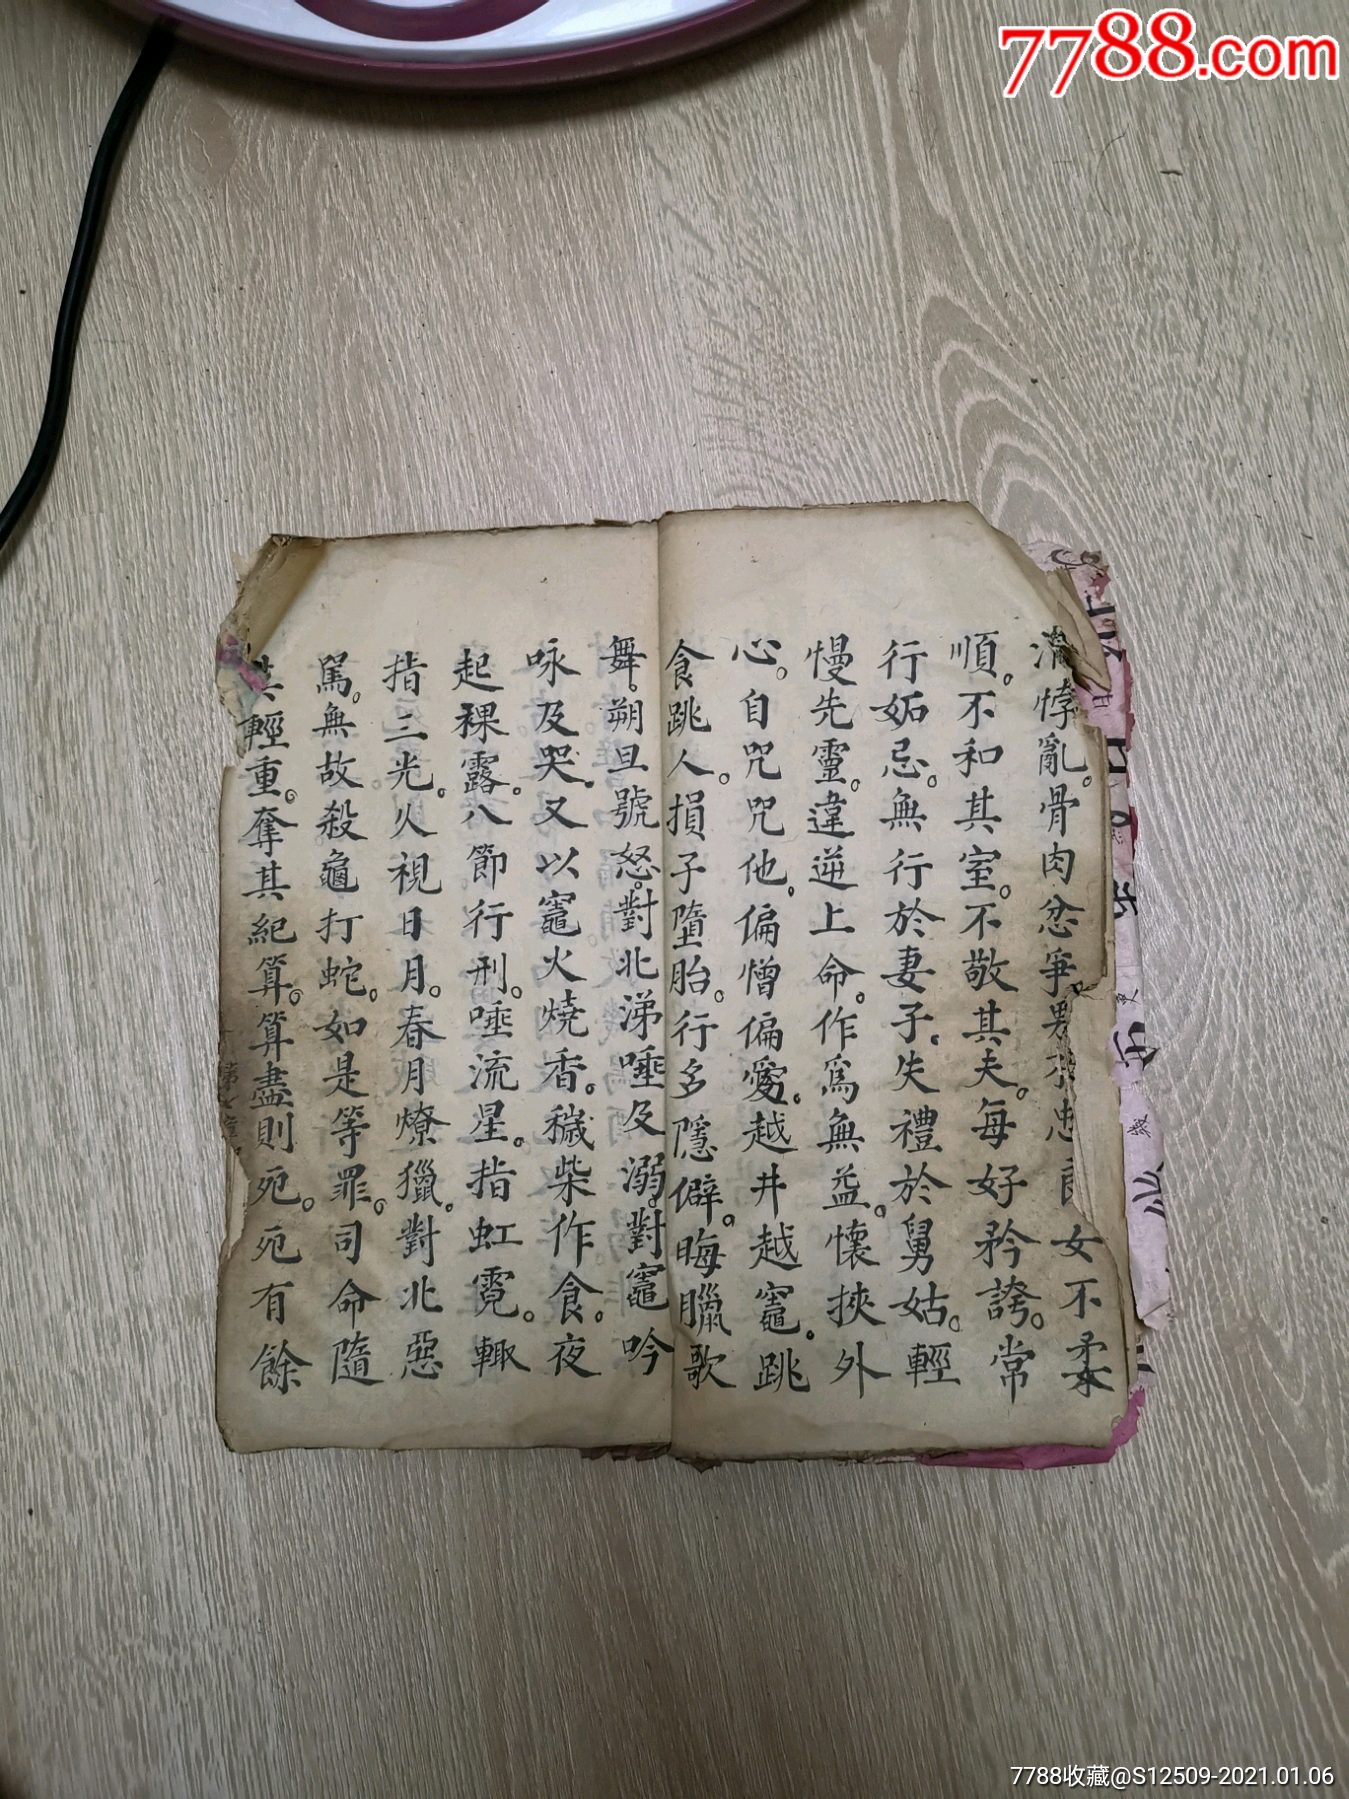 7788.com
淆悖亂。骨肉忿爭。男不忠良女不柔
順。不和其室。不敬其夫。每好矜誇。常
行妬忌。無行於妻子。失禮於舅姑。輕
慢先靈。違逆上命。作爲無益。懷挾外
心。自咒咒他。偏憎偏愛。越井越竈。跳
食跳人。損子墮胎。行多隱僻。晦臘歌
舞。朔旦號怒。對北涕唾及溺。對竈吟
咏及哭。又以竈火燒香。穢柴作食。夜
起裸露。八節行刑。唾流星。指虹霓。輙
指三光。久視日月。春月燎獵。對北惡
罵。無故殺龜打蛇。如是等罪。司命隨
其輕重。奪其紀算。算盡則死。死有餘
7788收藏@S12509-2021.01.06